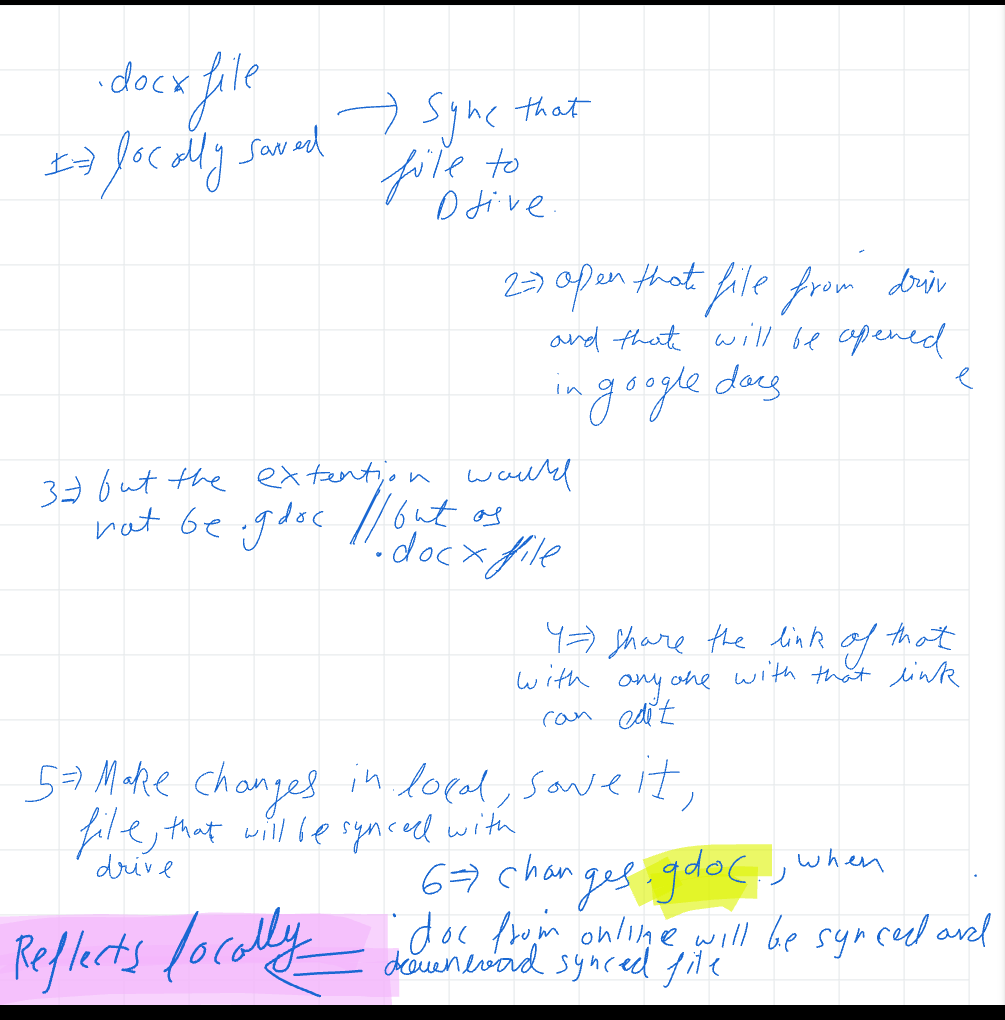 .docx file
1=> locally saved → Sync that
file to
Drive.
2=> open that file from driv
and that will be opened
e
in google docs
3=> but the extention would
not be .gdoc // but as
.docx file
4=> share the link of that
with anyone with that link
can edit
5=> Make changes in local, save it,
file, that will be synced with
drive
6=> changes .gdoc, when
doc from online will be synced and
synced file
Reflects locally